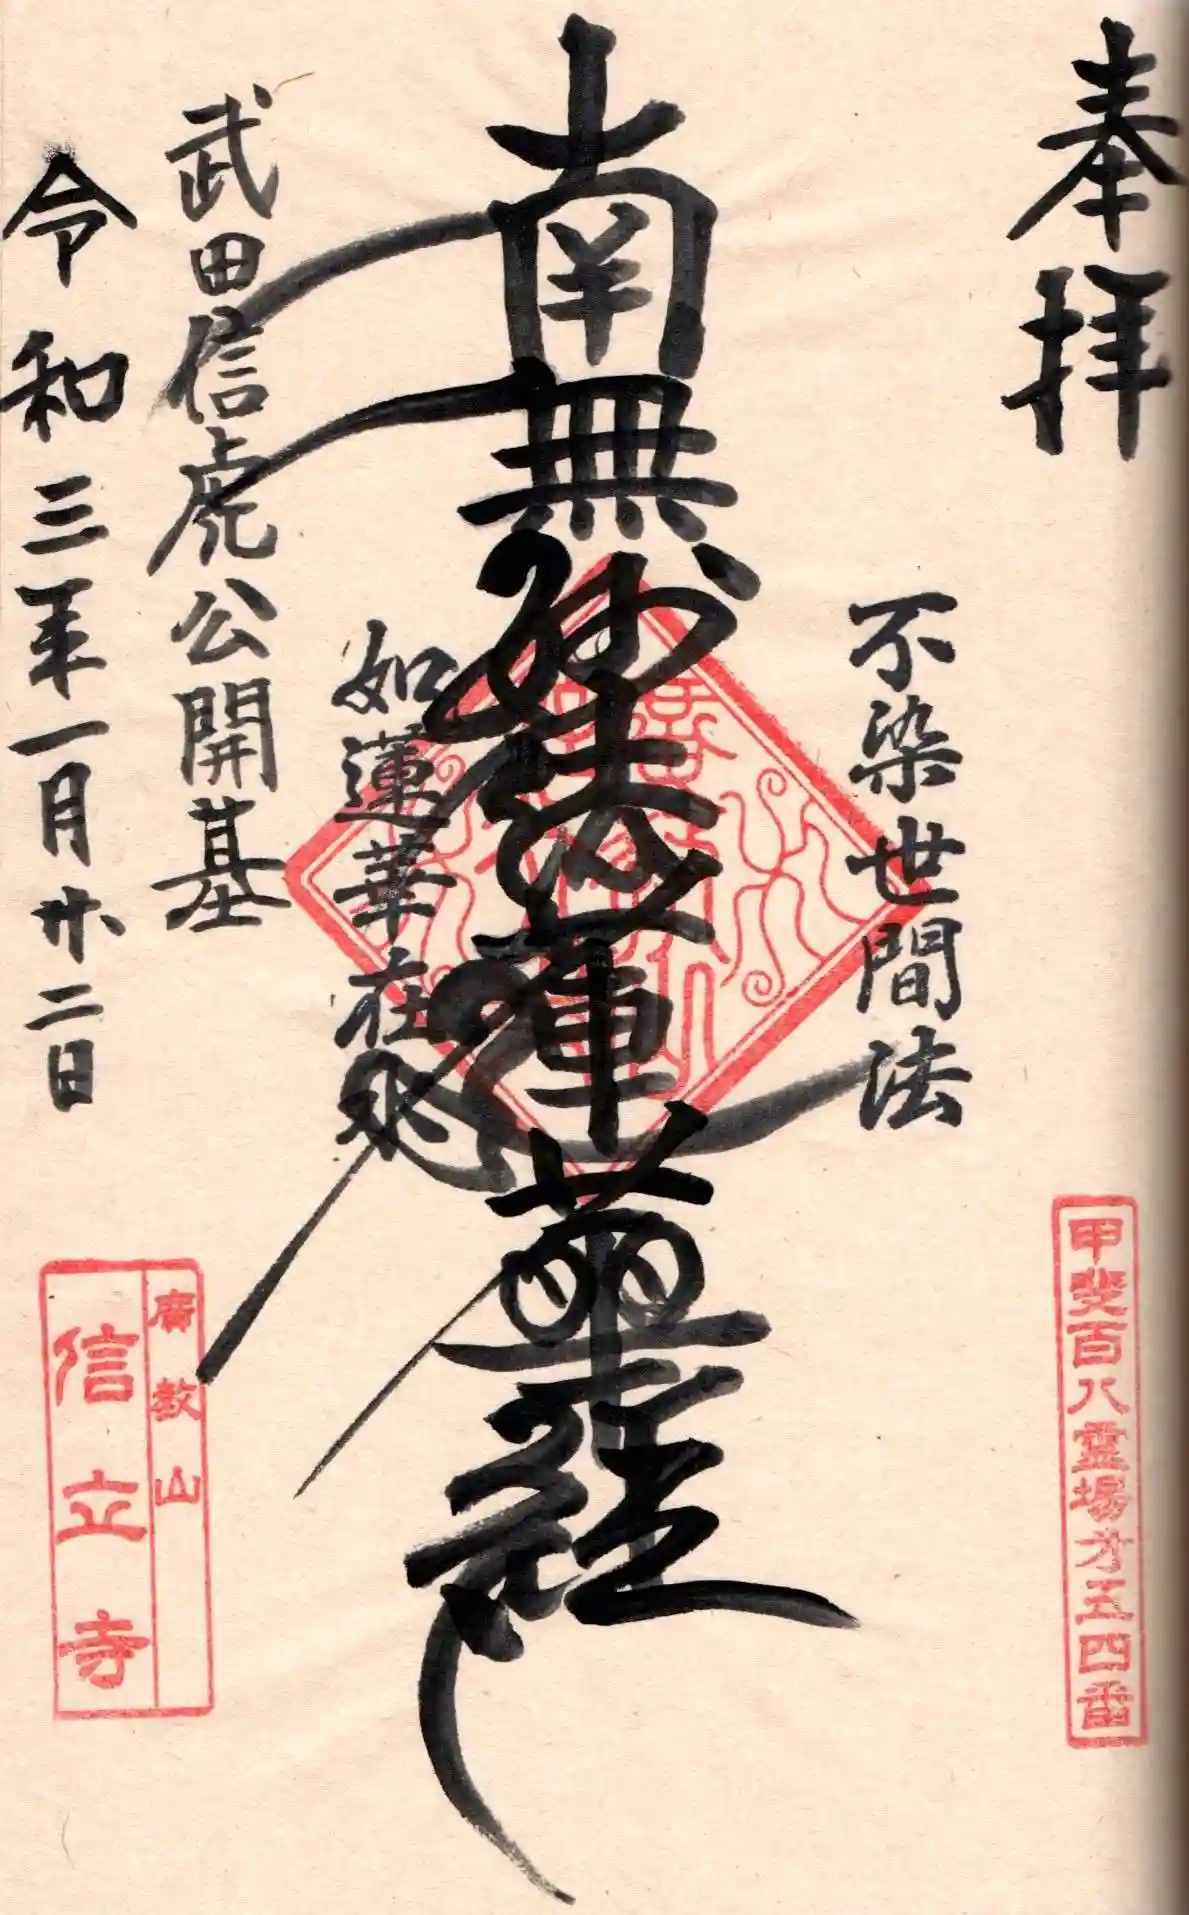 奉拝
甲斐百八霊場才五四番
不染世間法
南無妙法蓮華経
如蓮華在水
武田信虎公開基
令和三年一月廿二日
廣教山
信立寺